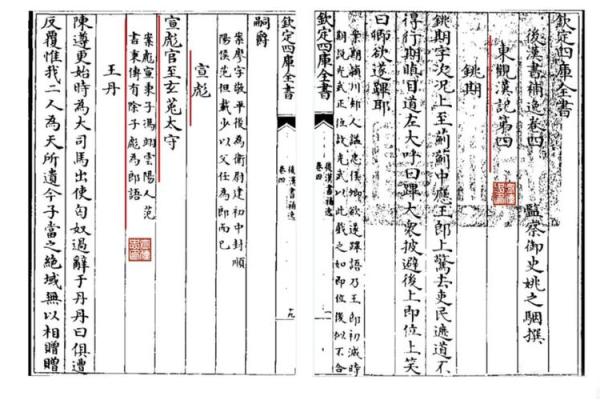 欽定四庫全書
後漢書補逸卷四
監察御史姚之駰撰
東觀漢記第四
銚期
銚期字次況上至薊薊中應王郎上驚去吏民遮道不
得行期瞋目道左大呼曰蹕大衆披避後上即位上笑
曰卿欲遂蹕耶
案期頴川郟人謚忠侯卿欲遂蹕語乃王郎初滅時
期説光武正位故光武以此戲之如即位後似不合
後漢書補逸
卷四
一
後漢書補逸
卷四
十九
欽定四庫全書
嗣爵
案廖字敬平後為衛尉建初中封順
陽侯范但載少以父任為郎而已
宣彪
宣彪官至玄菟太守
案彪宣秉子馮翊雲陽人范
書秉傳有除子彪為郎語
王丹
陳遵更始時為大司馬出使匈奴過辭于丹丹曰俱遭
反覆惟我二人為天所遺今子當之絶域無以相贈贈